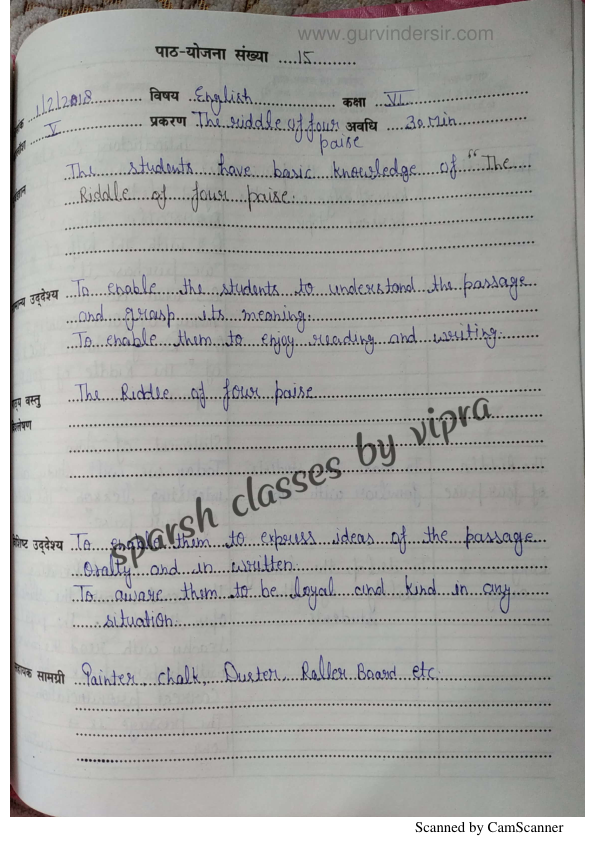 www.gurvindersir.com
पाठ-योजना संख्या ....15..........
1/2/2018 विषय English कक्षा VI
V प्रकरण The riddle of four अवधि 30 Min
paise
The students have basic knowledge of "The
Riddle of four paise.
उद्देश्य To enable the students to understand the passage
and grasp its meaning.
To enable them to enjoy reading and writing.
वस्तु The Riddle of four paise
sparsh classes by vipra
उद्देश्य To enable them to express ideas of the passage
Orally and in written.
To aware them to be loyal and kind in any
situation.
सामग्री Painter, chalk, Duster, Roller Board etc.
Scanned by CamScanner